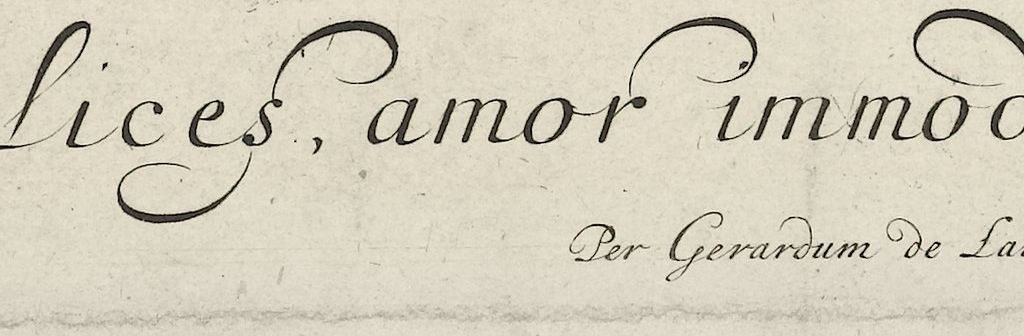 lices, amor immod
Per Gerardum de Lai